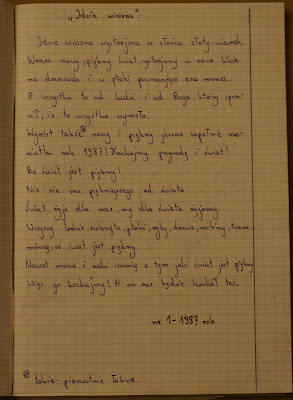 „Idzie wiosna"
Idzie wiosna wystrojona w słońca złoty wianek.
Wraca nowy, piękny świat, wystrojony w nowe liście
na drzewach i w ptaki powracające zza morza.
A wszystko to od ludzi i od Boga, który spra-
wił, że to wszystko wyrosło.
Wyrósł także nowy i piękny jeszcze zupełnie no-
wiutki rok 1987! Kochajmy przyrodę i świat!
Bo świat jest piękny!
Nic nie ma piękniejszego od świata.
Świat żyje dla nas, my dla świata żyjemy.
Wszyscy ludzie, zwierzęta, ptaki, ryby, drzewa, rośliny, trawa
mówią, że świat jest piękny.
Nawet morza i rzeki szumią o tym jaki świat jest piękny.
Więc go kochajmy! A on nas będzie kochał też.
nr. 1 - 1987 rok
także - pierwotnie